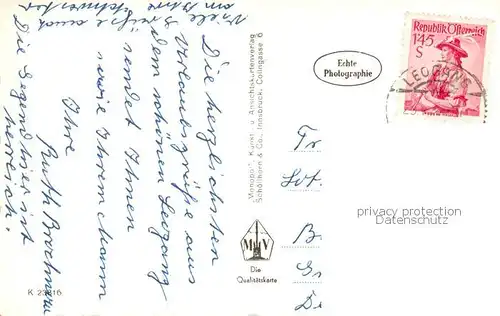 Die herzlichsten
Urlaubsgrüße aus
dem schönen Leogang
sendet Ihnen
sowie Ihrem Mann
Ihre
Ruth
Die Gegend hier ist
herrlich.
Viele Grüße auch
an Ihre Schwester
"Monopol", Kunst- u. Ansichtskartenverlag
Schöllhorn & Co., Innsbruck, Colingasse 6
Echte
Photographie
Republik Österreich
1.45
S
LEOGANG
M V
Die
Qualitätskarte
K 23816
privacy protection
Datenschutz